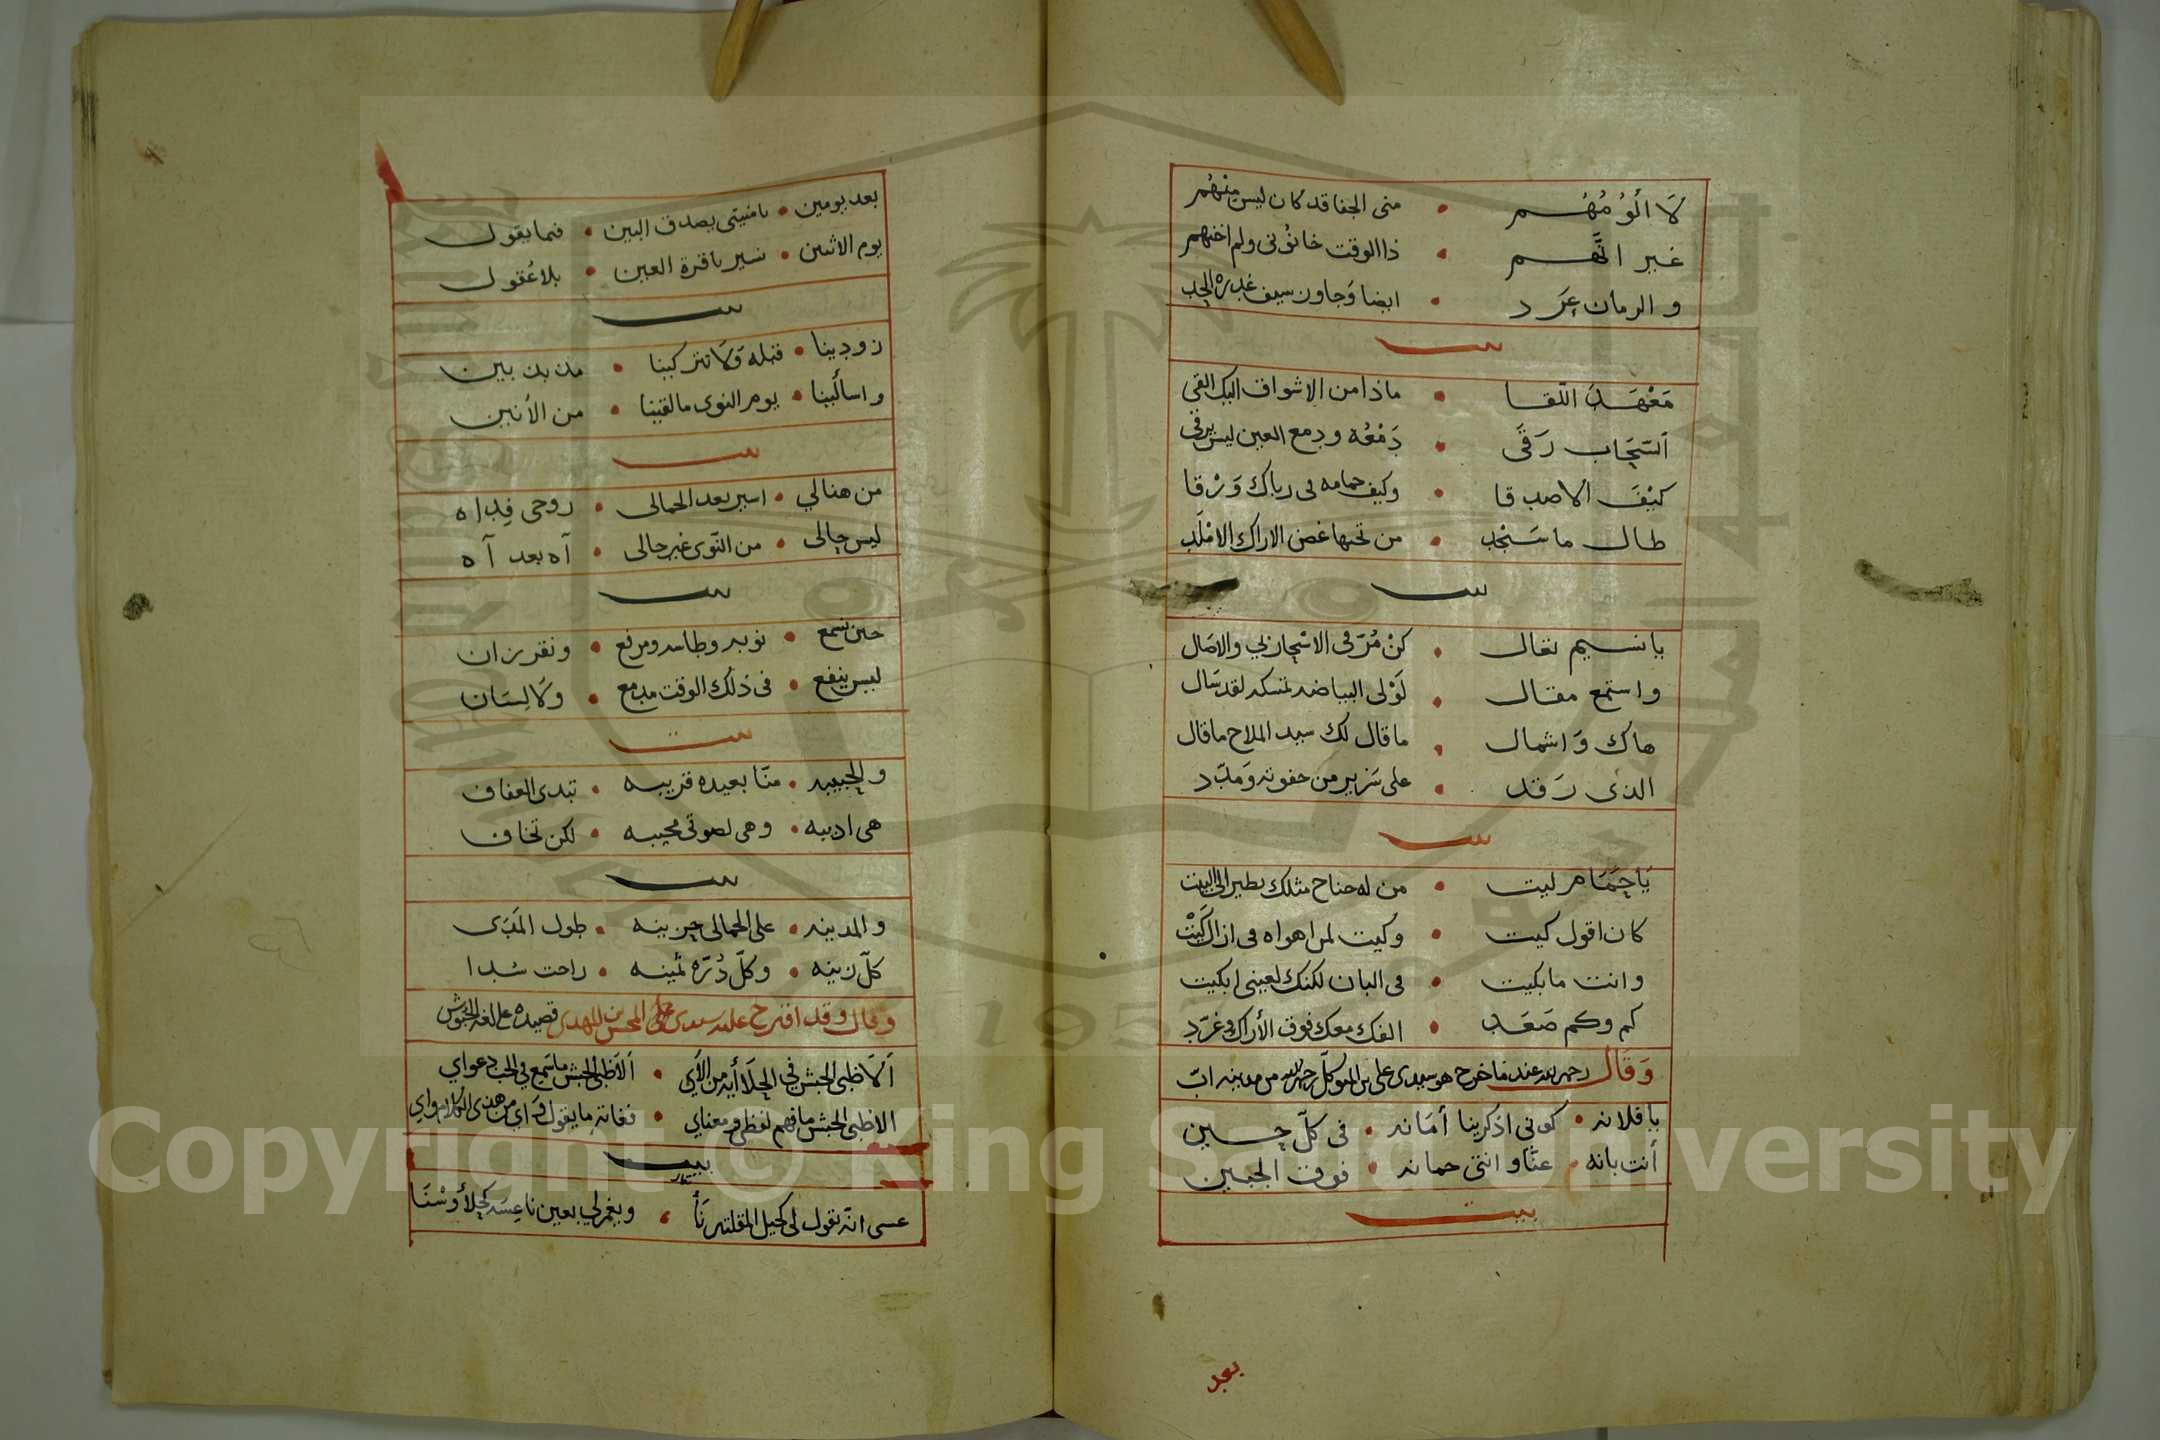 لَا ألُوُمُهُم • منى الجفا قد كان ليس منهُم
غير انَّهم • ذا الوقت خانُوني ولم اخنهم
و الزمان عَرَد • ايضا وَجاوز سيف غدره الحد
بيت
مَعْهَدَ اللقا • ماذا من الاشواق اليك القي
السَحَاب رَقَى • دَمْعُه ودمع العين ليس يرقى
كيْفَ الاصدقا • وكيف حمامه في رباك وَرْقا
طال ما سَنْجد • من تحتها غض الاراك الاملَد
بيت
يا نسيم تعال • كنْ مُرّ في الاسْحار بي والاصال
واستمع مقال •
هاك وَاشمال • ما قال لك سيد الملاح ما قال
الذي رَقد • على سَرير من
بيت
يَا حَمَام ليت • من له جناح مثلك يطير الى البيت
كان اقول كيت • وكيت لمن اهواه في
وانت ما بكيت • في البان لكنك لعيني ابكيت
كم وكم صَعَد • الفك معك فوق الأراك وغرّد
وَقَال رحمه الله عندما خرج هو سيدي علي بن المتوكل رحمه الله من مدينه اب
يا فلانه • كوني اذكرينا أمَانه • في كلّ حين
أنت بانه • عنّا وانتي حمانه • فوق الجبين
بيت
بعد
بعد يومين • يا منيتي يصدق البين • فما يقول
يوم الاثنين • نسير يا قرة العين • بلا عُقول
بيت
زودينا • قبله وَلَا تتركينا • من بن بين
واسألينا • يوم النوى ما لقينا • من الأنين
بيت
من هنالي • اسير بعد الجمالى • روحى فِداه
ليس حالى • من النّوى غير حالى • آه بعد آه
بيت
حين نسمع • نوبه وطاسه ومرفع • ونقرزان
ليس ينفع • في ذلك الوقت مدمع • ولَا لِسَان
بيت
والحبيبه • منّا بعيده قريبه • تبدى العفاف
هى اديبه • وهى لصوتى مجيبه • لكن تخاف
بيت
والمدينه • على الجمالى حزينه • طول المَدَى
كلّ زينه • وكلّ دُرّه ثمينه • راحت سُدا
وقال وقد اقترح عليه سيدى علي المحسن بن المهدى قصيده على لغه الحبوش
ألَا ظبى الحبش في • ألَا ظبى الحبش ما تسمع في الحب دعواي
الا ظبى الحبش ما فهم لفظى ومعناي • فغانه ما يقول وَاي من هذى الكلام واي
بيت
عسى انه يقول لى كحيل المقلتين نَأ • ويغمز لي بعين ناعسه كحلا وسْنَا
Copyright © King Saud University
1957